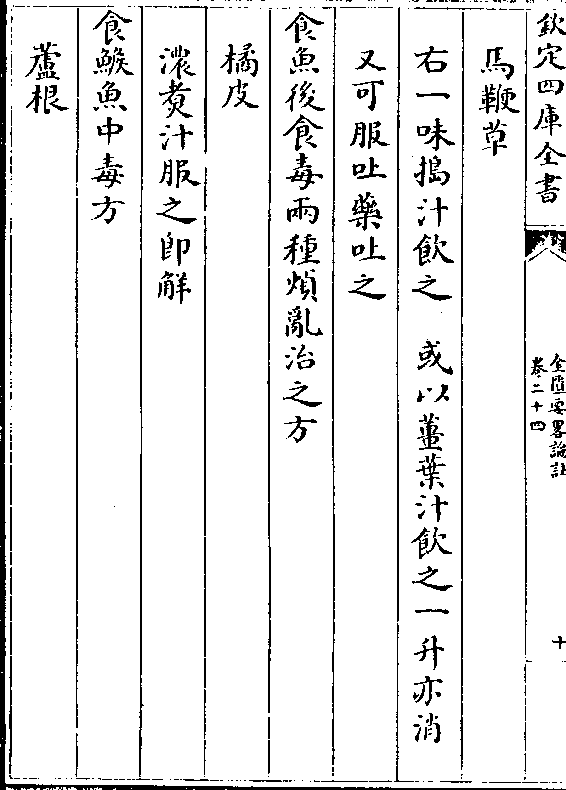 欽定四庫全書
金匱要畧論註
卷二十四
十
馬鞭草
右一味搗汁飲之　或以薑葉汁飲之一升亦消
又可服吐藥吐之
食魚後食毒兩種煩亂治之方
橘皮
濃煑汁服之即解
食鯸魚中毒方
蘆根